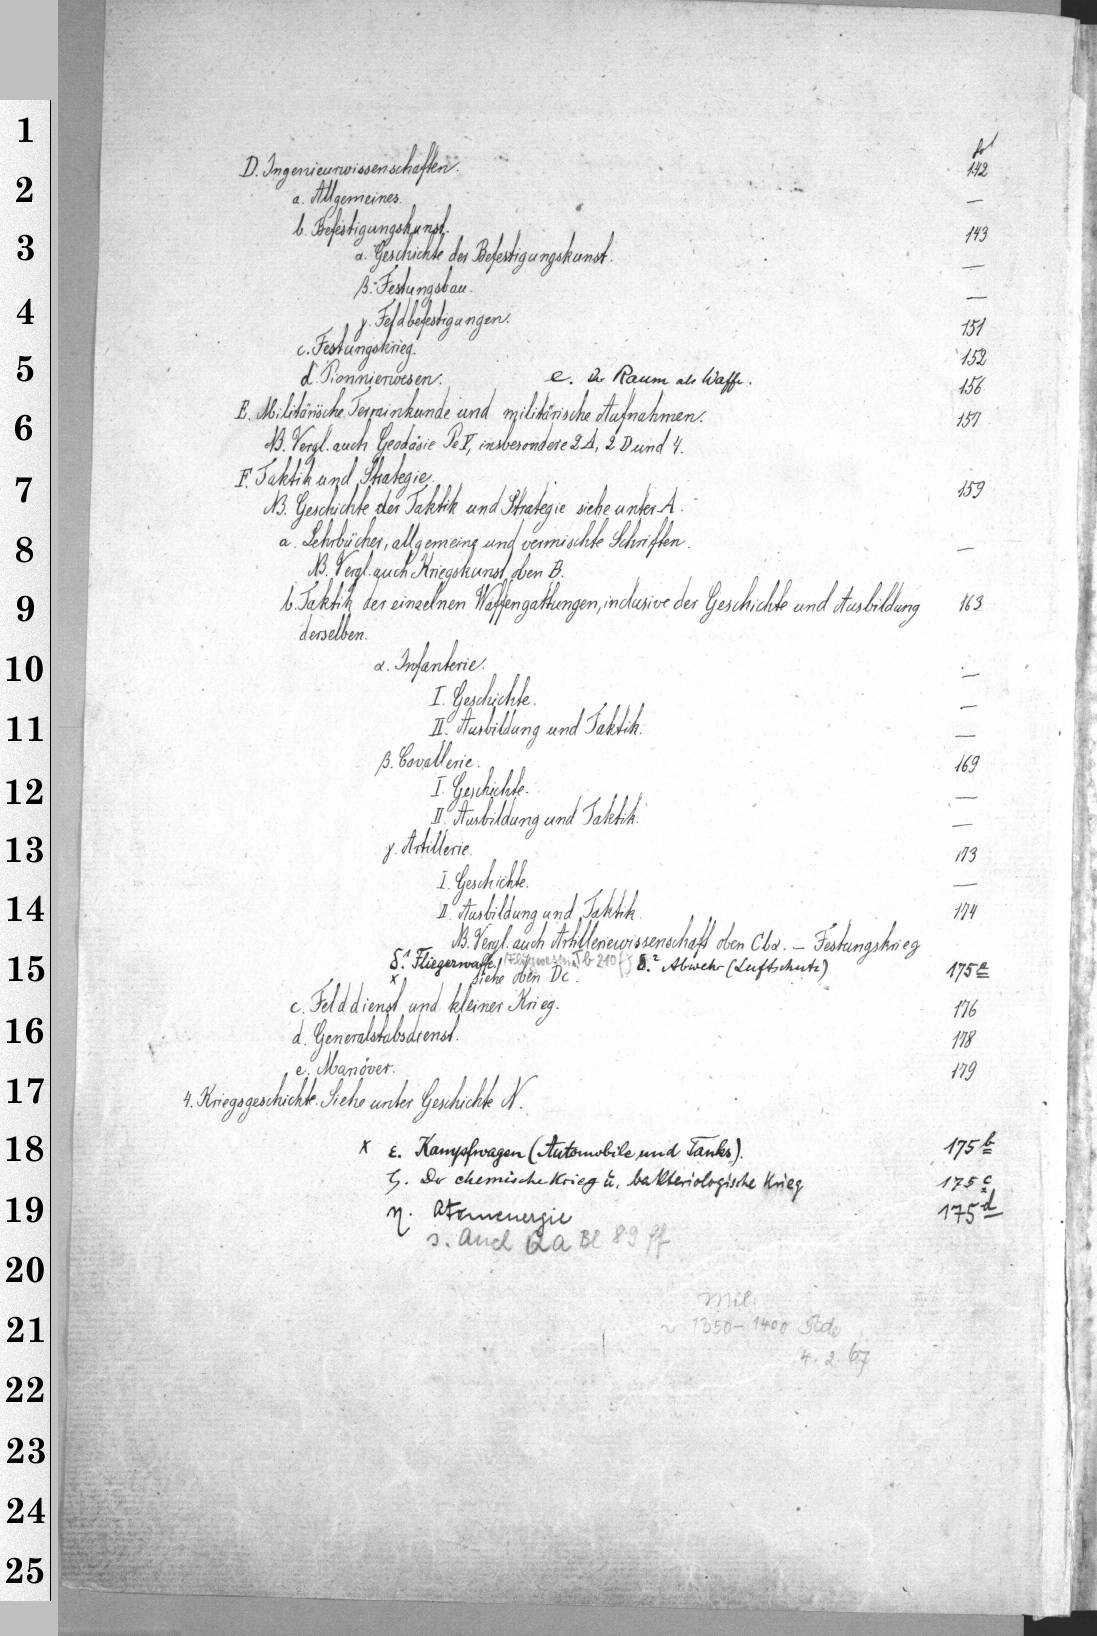 fol
D. Ingenieurwissenschaften. 142
a. Allgemeines. —
b. Befestigungskunst. 143
α. Geschichte der Befestigungskunst. —
β. Festungsbau. —
γ. Feldbefestigungen. 151
c. Festungskrieg. 152
d. Pionnierwesen. e. Der Raum als Waffe. 156
E. Militärische Terrainkunde und militärische Aufnahmen. 157
NB. Vergl. auch Geodäsie Pe V, insbesondere 2A, 2D und 4.
F. Taktik und Strategie. 159
NB. Geschichte der Taktik und Strategie siehe unter A.
a. Lehrbücher, allgemeine und vermischte Schriften. —
NB. Vergl. auch Kriegskunst oben B.
b. Taktik der einzelnen Waffengattungen, inclusive der Geschichte und Ausbildung 163
derselben.
α. Infanterie. —
I. Geschichte. —
II. Ausbildung und Taktik. —
β. Cavallerie. 169
I. Geschichte. —
II. Ausbildung und Taktik. —
γ. Artillerie. 173
I. Geschichte. —
II. Ausbildung und Taktik. 174
NB. Vergl. auch Artilleriewissenschaft oben Cbα. — Festungskrieg
δ.¹ Fliegerwaffe δ.² Abwehr (Luftschutz) 175a
x siehe oben Dc.
c. Felddienst und kleiner Krieg. 176
d. Generalstabsdienst. 178
e. Manöver. 179
4. Kriegsgeschichte. Siehe unter Geschichte N.
x ε. Kampfwagen (Automobile und Tanks). 175b
ζ. Der chemische Krieg u. bakteriologische Krieg 175c
η. Atomenergie 175d
s. auch Qa Bl 89 ff
Mil.
~ 1350–1400
4. 2. 67
1
2
3
4
5
6
7
8
9
10
11
12
13
14
15
16
17
18
19
20
21
22
23
24
25